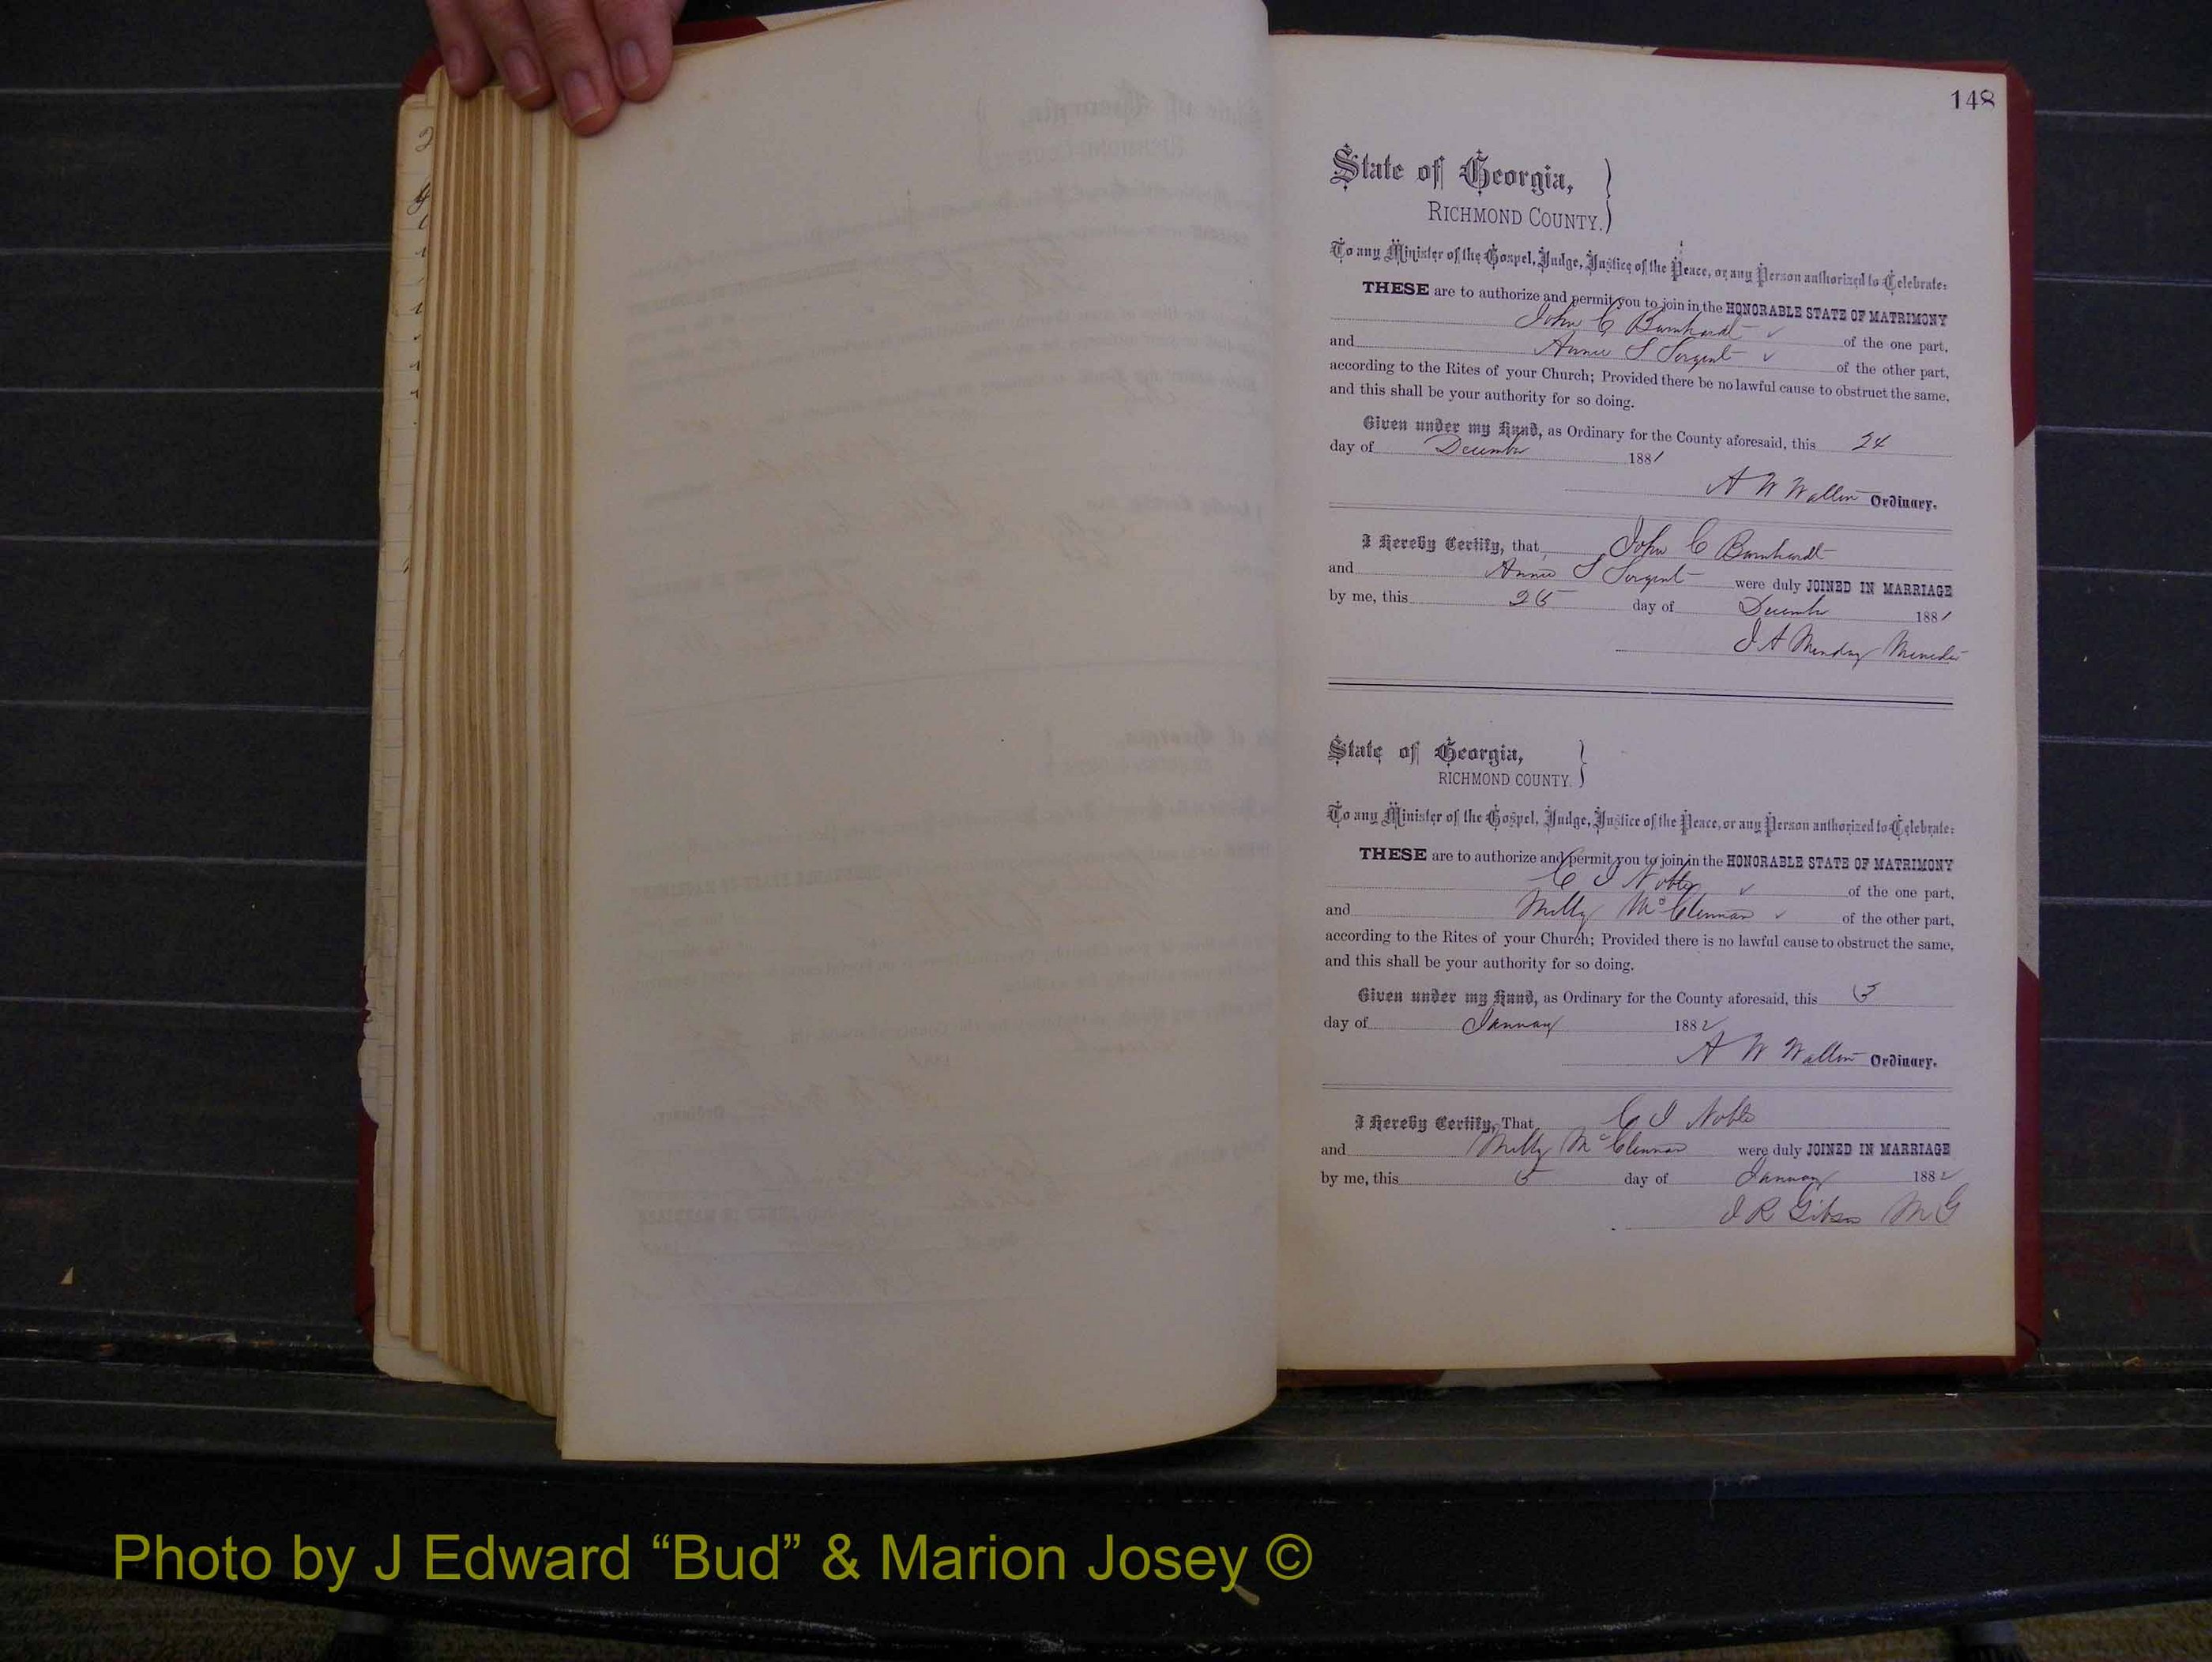 148
State of Georgia,
RICHMOND COUNTY.
To any Minister of the Gospel, Judge, Justice of the Peace, or any Person authorized to Celebrate:
THESE are to authorize and permit you to join in the HONORABLE STATE OF MATRIMONY
John C Barnhardt of the one part,
and Annie S Sergent of the other part,
according to the Rites of your Church; Provided there be no lawful cause to obstruct the same,
and this shall be your authority for so doing.
Given under my Hand, as Ordinary for the County aforesaid, this 24
day of December 1881
A W Walton Ordinary.
I Hereby Certify, that John C Barnhardt
and Annie S Sergent were duly JOINED IN MARRIAGE
by me, this 25 day of December 1881
J A Munday
State of Georgia,
RICHMOND COUNTY.
To any Minister of the Gospel, Judge, Justice of the Peace, or any Person authorized to Celebrate:
THESE are to authorize and permit you to join in the HONORABLE STATE OF MATRIMONY
C J Nobles of the one part,
and Milly McClennan of the other part,
according to the Rites of your Church; Provided there is no lawful cause to obstruct the same,
and this shall be your authority for so doing.
Given under my Hand, as Ordinary for the County aforesaid, this
day of January 1882
A W Walton Ordinary.
I Hereby Certify, That C J Nobles
and Milly McClennan were duly JOINED IN MARRIAGE
by me, this 5 day of January 1882
J R Gibson M G
Photo by J Edward “Bud” & Marion Josey ©